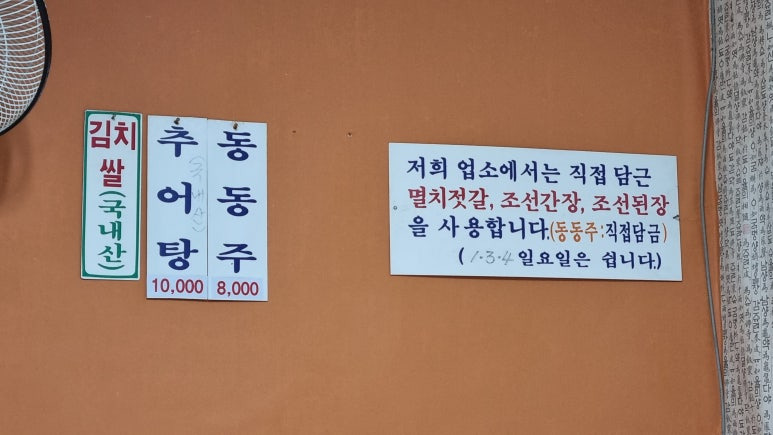 김치
쌀
(국내산)
추어탕
(국내산)
10,000
동동주
8,000
저희 업소에서는 직접 담근
멸치젓갈, 조선간장, 조선된장
을 사용합니다.(동동주:직접담금)
(1·3·4 일요일은 쉽니다.)